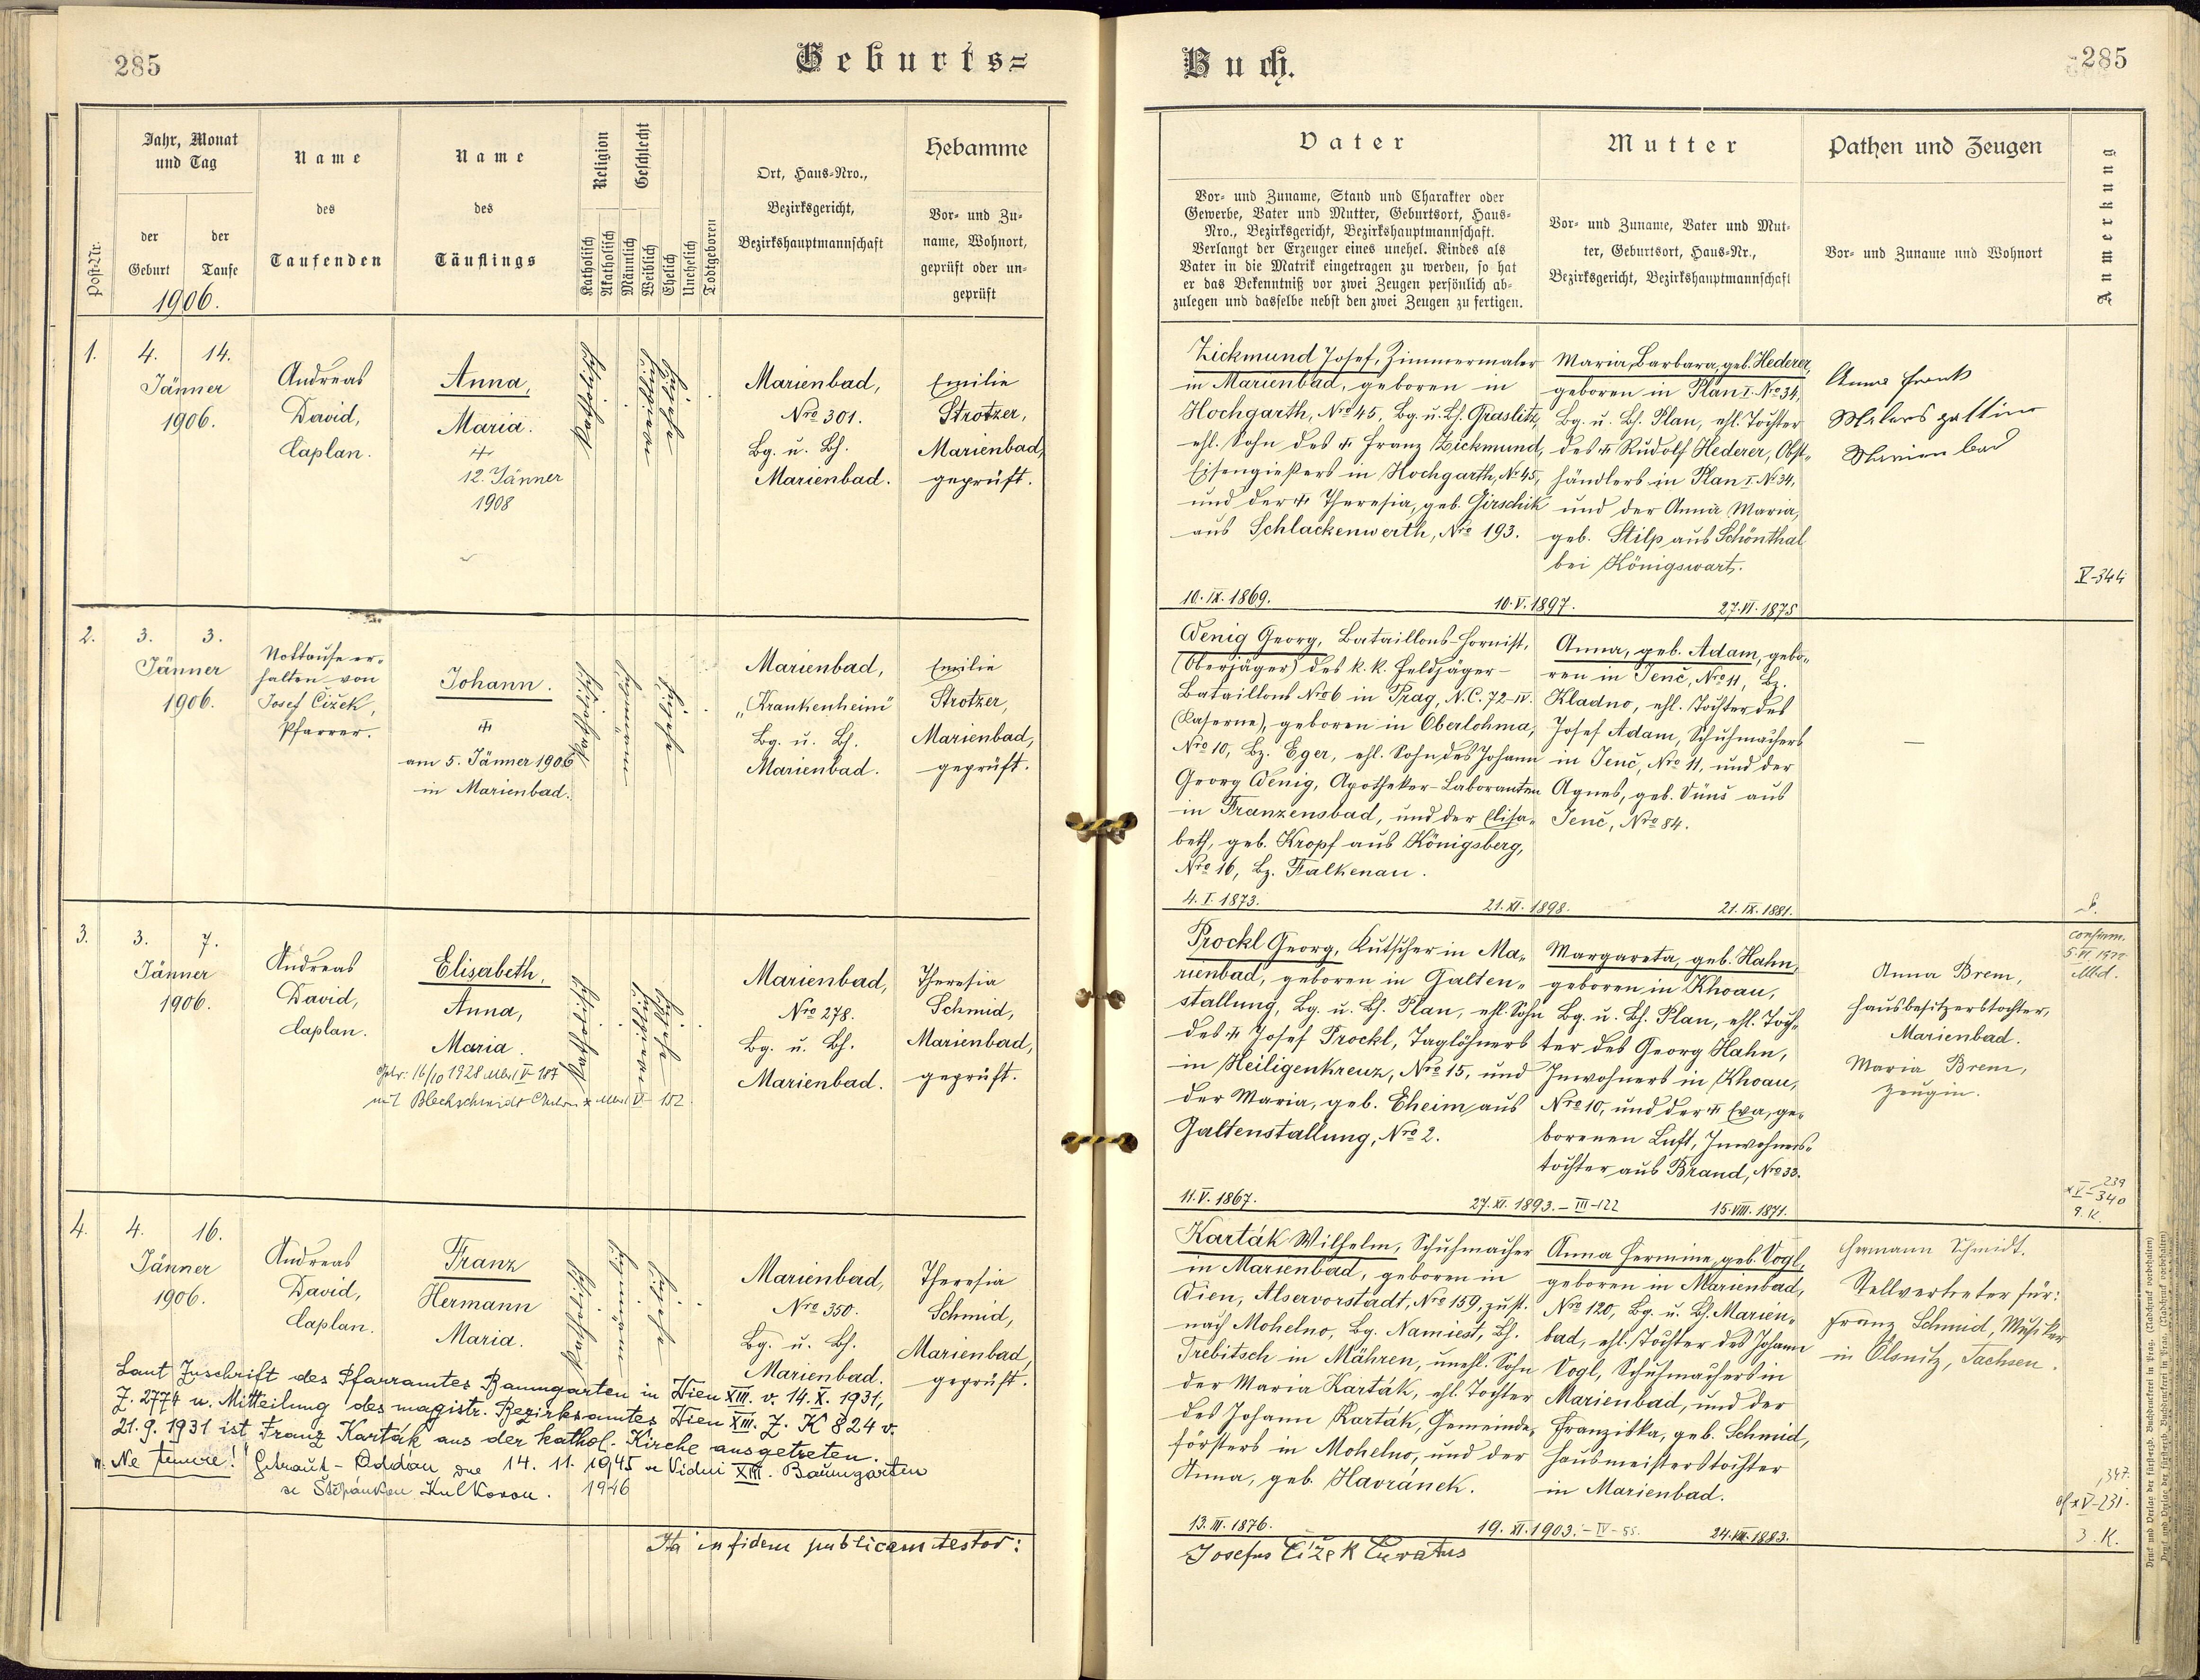 285
Geburts=
Jahr, Monat
und Tag
Post-Nr.
der
Geburt
der
Taufe
1906.
Name
des
Taufenden
Name
des
Täuflings
Religion
Geschlecht
Katholisch
Akatholisch
Männlich
Weiblich
Ehelich
Unehelich
Todtgeboren
Ort, Haus-Nro.,
Bezirksgericht,
Bezirkshauptmannschaft
Hebamme
Vor- und Zu-
name, Wohnort,
geprüft oder un-
geprüft
1.
4. 14.
Jänner
1906.
Andreas
David,
Caplan.
Anna,
Maria.
12. Jänner
1908
Katholisch
Marienbad,
Nro 301.
Bg. u. Bh.
Marienbad.
Emilie
Strotzer,
Marienbad,
geprüft.
2.
3. 3.
Jänner
1906.
Nottaufe er-
halten von
Josef Čižek,
Pfarrer.
Johann.
am 5. Jänner 1906
in Marienbad.
Katholisch
Marienbad,
„Krankenheim"
Bg. u. Bh.
Marienbad.
Emilie
Strotzer,
Marienbad,
geprüft.
3.
3. 7.
Jänner
1906.
Andreas
David,
Caplan.
Elisabeth,
Anna,
Maria.
16/10 1928 V 187
mit Blechschmidt VI - 152.
Katholisch
Marienbad,
Nro 278.
Bg. u. Bh.
Marienbad.
Theresia
Schmid,
Marienbad,
geprüft.
4.
4. 16.
Jänner
1906.
Andreas
David,
Caplan.
Franz
Hermann
Maria.
Katholisch
Marienbad,
Nro 350.
Bg. u. Bh.
Marienbad.
Theresia
Schmid,
Marienbad,
geprüft.
Laut Zuschrift des Pfarramtes Baumgarten in Wien XIII. v. 14. X. 1931,
Z. 2774 u. Mitteilung des magistr. Bezirksamtes Wien XIII. Z. K 824 v.
21. 9. 1931 ist Franz Karták aus der kathol. Kirche ausgetreten.
Getraut - Oddán dne 14. 11. 1945 ve Vídni XIII. Baumgarten
se Štěpánkou Kulkovou. 1946
Ita in fidem publicam testor:
Buch.
285
Vater
Vor- und Zuname, Stand und Charakter oder
Gewerbe, Vater und Mutter, Geburtsort, Haus-
Nro., Bezirksgericht, Bezirkshauptmannschaft.
Verlangt der Erzeuger eines unehel. Kindes als
Vater in die Matrik eingetragen zu werden, so hat
er das Bekenntniß vor zwei Zeugen persönlich ab-
zulegen und dasselbe nebst den zwei Zeugen zu fertigen.
Mutter
Vor- und Zuname, Vater und Mut-
ter, Geburtsort, Haus-Nr.,
Bezirksgericht, Bezirkshauptmannschaft
Pathen und Zeugen
Vor- und Zuname und Wohnort
Anmerkung
Zickmund Josef, Zimmermaler
in Marienbad, geboren in
Hochgarth, Nro 45, Bg. u. Bh. Graslitz,
ehl. Sohn des † Franz Zickmund,
Eisengießers in Hochgarth, Nr 45,
und der † Theresia, geb. Girschik
aus Schlackenwerth, Nro 193.
10. IX. 1869.
10. V. 1897.
Maria, Barbara, geb. Hederer,
geboren in Plan I. Nro 34,
Bg. u. Bh. Plan, ehl. Tochter
des † Rudolf Hederer, Obst-
händlers in Plan I. N. 34,
und der Anna Maria,
geb. Stilp aus Schönthal
bei Königswart.
27. VI. 1875
Anna Frank
Malers gattin
Marienbad
V-344
Wenig Georg, Bataillons-Hornist,
(Oberjäger) des k. k. Feldjäger-
Bataillons Nro 6 in Prag, N.C. 72-IV.
(Kaserne), geboren in Oberlohma,
Nro 10, Bz. Eger, ehl. Sohn des Johann
Georg Wenig, Apotheker-Laboranten
in Franzensbad, und der Elisa-
beth, geb. Kropf aus Königsberg,
Nro 16, Bz. Falkenau.
4. I. 1873.
21. XI. 1898.
Anna, geb. Adam, gebo-
ren in Jenč, Nro 11, Bz.
Kladno, ehl. Tochter des
Josef Adam, Schuhmachers
in Jenč, Nro 11, und der
Agnes, geb. aus
Jenč, Nro 84.
21. IX. 1881.
—
Prockl Georg, Kutscher in Ma-
rienbad, geboren in Galten-
stallung, Bg. u. Bh. Plan, ehl. Sohn
des † Josef Prockl, Taglöhners
in Heiligenkreuz, Nro 15, und
der Maria, geb. Eheim aus
Galtenstallung, Nro 2.
11. V. 1867.
27. XI. 1893. - III-122
Margareta, geb. Hahn,
geboren in Khoau,
Bg. u. Bh. Plan, ehl. Toch-
ter des Georg Hahn,
Inwohners in Khoau,
Nro 10, und der † Eva, ge-
borenen Luft, Inwohners-
tochter aus Brand, Nro 33.
15. VIII. 1871.
Anna Brem,
Hausbesitzerstochter,
Marienbad.
Maria Brem,
Zeugin.
239
V-340
Karták Wilhelm, Schuhmacher
in Marienbad, geboren in
Wien, Alservorstadt, Nro 159, zust.
nach Mohelno, Bg. Namiest, Bh.
Trebitsch in Mähren, unehl. Sohn
der Maria Karták, ehl. Tochter
des Johann Karták, Gemeinde-
försters in Mohelno, und der
Anna, geb. Havránek.
13. III. 1876.
19. XI. 1903. - IV-85.
Anna Hermine, geb. Vogl,
geboren in Marienbad,
Nro 120, Bg. u. Bh. Marien-
bad, ehl. Tochter des Johann
Vogl, Schuhmachers in
Marienbad, und der
Franziska, geb. Schmid,
Hausmeisterstochter
in Marienbad.
Hermann Schmidt.
Stellvertreter für:
Franz Schmid, Musiker
in Ölsnitz, Sachsen.
347.
V-231.
3. K.
Josefus Čížek Curatus